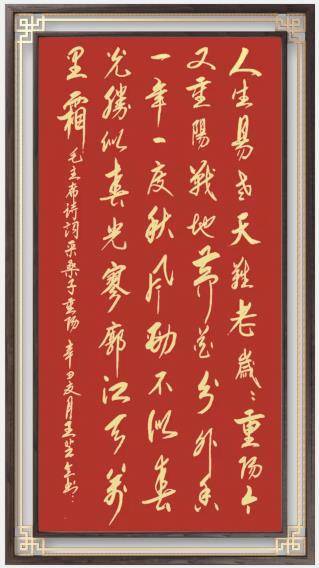 人生易老天難老歲〻重阳今
又重陽戰地黄花分外香
一年一度秋风勁不似春
光勝似春光寥廓江天萬
里霜
毛主席诗词采桑子重阳 辛丑 月王